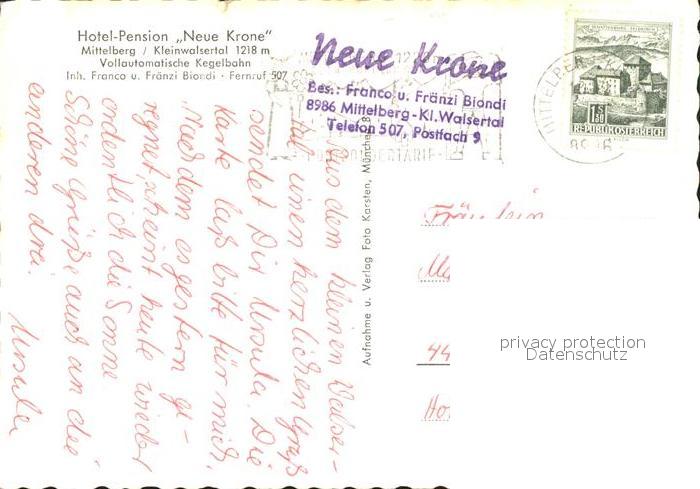 Hotel-Pension „Neue Krone"
Mittelberg / Kleinwalsertal 1218 m
Vollautomatische Kegelbahn
Inh. Franco u. Fränzi Biondi · Fernruf 507
Neue Krone
Bes.: Franco u. Fränzi Biondi
8986 Mittelberg-Kl.Walsertal
Telefon 507, Postfach 9
MITTELBER
8986
1.80
REPUBLIK ÖSTERREICH
Aus dem kleinen Walser-
tal einen herzlichen Gruß
sendet Dir Ursula. Die
Karte laß bitte für mich.
Nachdem es gestern ge-
regnet, scheint heute wieder
ordentlich die Sonne
Schöne Grüße auch an die
anderen drei.
Ursula
Aufnahme u. Verlag Foto Karsten, München 8
Fräulein
44
privacy protection
Datenschutz